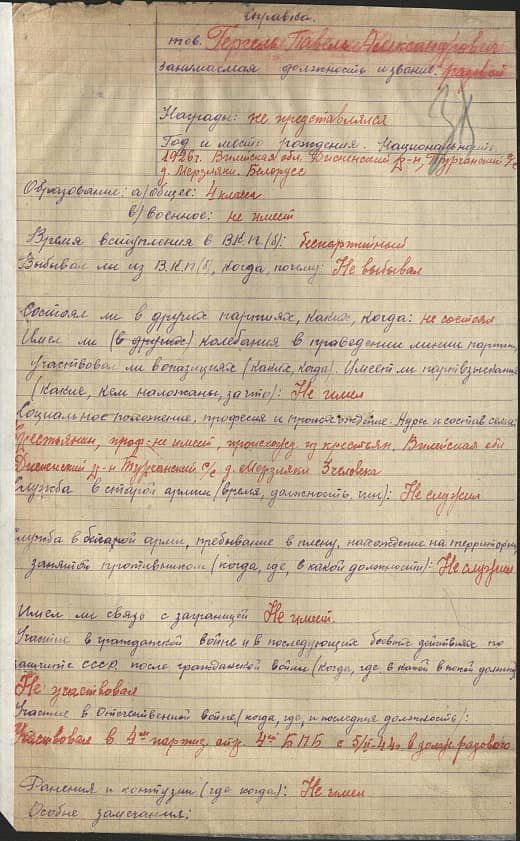 Справка.
тов. Павель Александрович
занимаемая должность и звание: рядовой
Награды: не представлялся
Год и место рождения. Национальность.
1926г. Вилийская обл. Дисненский р-н, Турганский с/с
д. Мерзляки. Белорусс
Образование: а) общее: 4 класса
в) военное: не имеет
Время вступления в В.К.П.(б): беспартийный
Выбывал ли из В.К.П(б), когда, почему: Не выбывал
Состоял ли в других партиях, каких, когда: не состоял
Имел ли (в других) колебания в проведении линии партии,
участвовал ли в опазициях (каких, когда). Имеет ли партвзыскания
(какие, кем наложены, за что): Не имел
Социальное положение, професия и происхождение. Адрес и состав семьи
Крестьянин, проф: не имеет, происхожд из крестьян, Вилийская обл
Дисненский р-н Турганский с/с д. Мерзляки 3 человека
Служба в старой армии (время, должность, чин): Не служил
Служба в белой армии, пребывание в плену, нахождение на территории
занятой противником (когда, где, в какой должности): Не служил
Имел ли связь с заграницей Не имеет.
Участие в гражданской войне и в последующих боевых действиях по
защите СССР, после гражданской войны (когда, где, в какой должно
Не участвовал
Участие в Отечественной войне (когда, где, и последняя должность):
Участвовал в 4ом партиз. отр. 4ой Б.П.Б с 44г. рядового
Ранения и контузии (где когда): Не имел
Особые замечания:
38